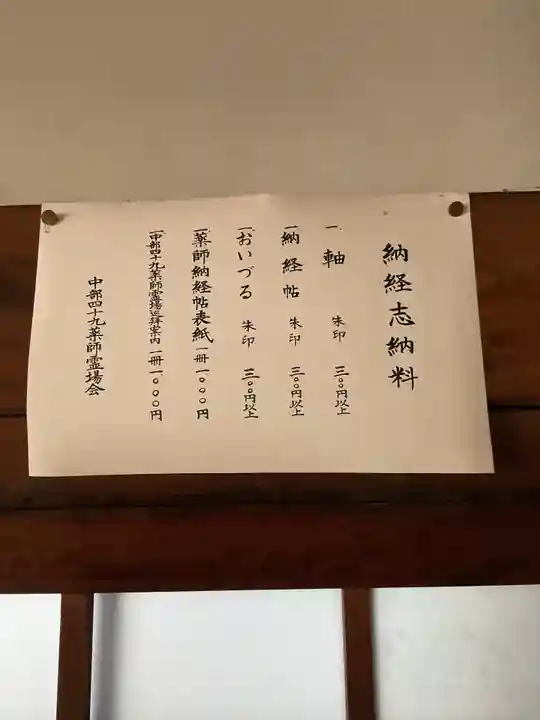 納経志納料
一 軸 朱印 三〇〇円以上
一 納経帖 朱印 三〇〇円以上
一 おいづる 朱印 三〇〇円以上
一 薬師納経帖表紙 一冊 一〇〇〇円
一 中部四十九薬師霊場巡拝案内 一冊 一〇〇〇円
中部四十九薬師霊場会